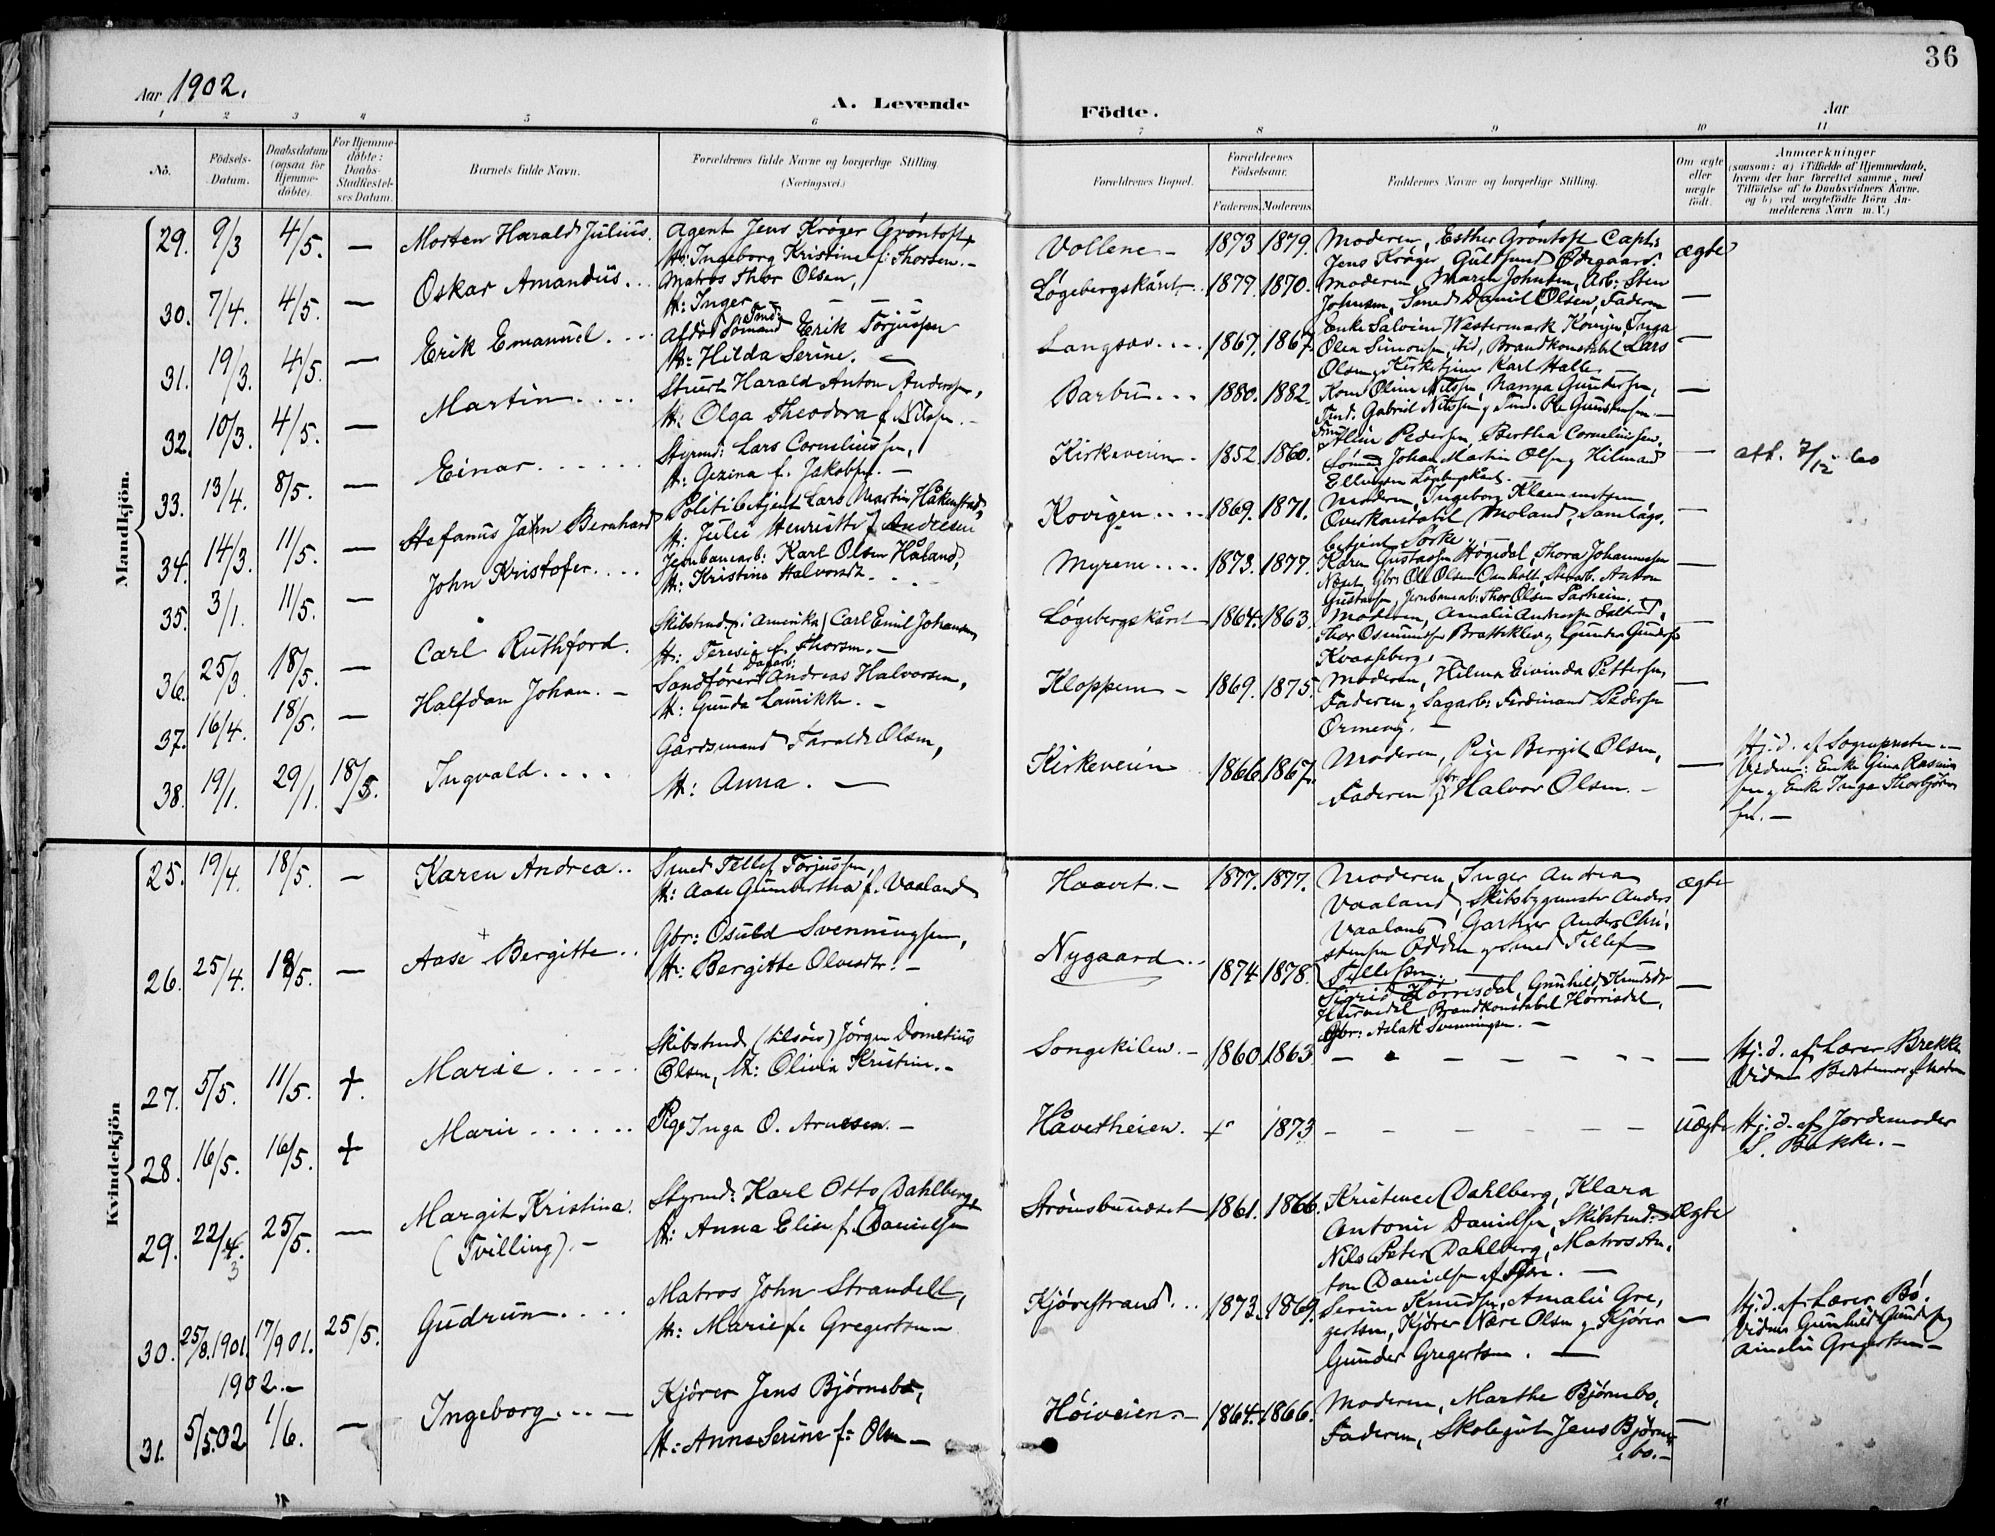 36
Aar 1902.
A. Levende Födte.
Aar
1 2 3 4 5 6 7 8 9 10 11
No.
Födsels-Datum.
Daabsdatum (ogsaa for Hjemmedöbte).
For Hjemmedöbte: Daabs-Stadfæstelses Datum.
Barnets fulde Navn.
Forældrenes fulde Navne og borgerlige Stilling (Næringsvei.)
Forældrenes Bopæl.
Forældrenes Födselsaar.
Faderens. Moderens.
Faddernes Navne og borgerlige Stilling.
Om ægte eller uægte födt.
Anmærkninger
(saasom: a) i Tilfælde af Hjemmedaab, hvem der har forrettet samme, med Tilföielse af to Daabsvidners Navne. og b) ved uægtefödte Börn Anmelderens Navn m. V.)
Mandkjön.
29. 9/3 4/5. — Morten Harald Julius.
Agent Jens Krøger Grøntoft
H: Ingeborg Kristine f. Thorsen. -
Vollene - 1873 1879.
Moderen, Esther Grøntoft Capt:
Jens Krøger, Gulsund Ødegaard.
ægte
30. 7/4. 4/5. — Oskar Amandus. .
Matros Thor Olsen,
H: Inger — — —
Løgebergskåret 1877. 1870.
Moderen, Maren Johnsen, Arb: Sten
Johnsen, Smed Daniel Olsen, Faderen
—
31. 19/3. 4/5. — Erik Emanuel. . .
Afdød Sömand Erik Torjussen
H: Hilda Serine. —
Langsæv. . . . 1867. 1867.
Enke Salvine Westermark Kovigen, Inga
Olea Simonsen, ibid, Brandkonstabel Lars
Olsen, Kirketjener Karl Halle
—
32. 10/3. 4/5. — Martin. . . .
Stuert Harald Anton Andersen,
H: Olga Theodora f. Nilsen. -
Barbu. . . 1880. 1882.
Kone Oline Nilsen, Nanna Gundersen,
Tmd. Gabriel Nilssen, Tmd. Ole Gundersen. —
—
33. 13/4. 8/5. — Einar. . . . . .
Styrmd: Lars Corneliussen,
H: Gezina f. Jakobsen. —
Kirkeveien. 1852. 1860.
Aline Pedersen, Bertha Corneliussen,
Sömand Johan Martin Olsen, Hilmar
Ellingsen
— att. 7/12 60
34. 14/3. 11/5. — Stefanus Jahn Bernhard
Politibetjent Lars Martin Håkenstad,
H: Julie Henriette f. Andresen
Kovigen. . . . 1869. 1871.
Moderen, Ingeborg Klemmetsen,
Overkonstabel Moland, Samlags.
betjent Sørke
—
35. 3/1. 11/5. — John Kristofer. . . .
Jernbanearb: Karl Olsen Håland,
H: Kristine Halvorsdtr. . . .
Myrene. . . . 1873. 1877.
Karen Gustavsen Høgedal, Thora Johannessen
Næset, Gbr: Ole Olsen Stenarb. Anton
Gustavsen, Jernbanearb: Thor Olsen
—
36. 25/3. 18/5. — Carl Ruthford.
Skibstmd. (i Amerika) Carl Emil Johansen,
H: Teresie f. Thorsen. -
Løgebergskåret 1864. 1863.
Moderen, Amalie Andersen
Thor Osmundsen Brattekleiv, Gunder Gundersen
Kvaasberg. -
—
37. 16/4. 18/5. — Halfdan Johan. -
Sandfører Dagarb: Andreas Halvorsen,
H: Gunda Laurikke. -
Kloppene - 1869. 1875.
Moderen, Hilma Eivinda Pettersen
Faderen, Sagarb: Ferdinand Pedersen
—
38. 19/1. 29/1. 18/5. Ingvald. . . .
Gårdsmand Harald Olsen,
H: Anna. —
Kirkeveien 1866. 1867.
Moderen, Pige Bergit Olsen,
Faderen, Gbr: Halvor Olsen. -
—
Hj. d. af Sogneprsten. -
Vidner: Enke Gina Rasmus
sen, Enke Inga Thorbjørn
sen. -
Kvindekjön
25. 19/4. 18/5. — Karen Andrea. .
Smed Tellef Torjussen,
H: Aase Gunbertha f. Vaaland
Haavet. - 1877. 1877.
Moderen, Inger Andrea
Vaaland, Skibsbygmester Anders
Vaaland, Gartner Anders Chri-
stensen Odden, Smed Tellef
Tellefsen. —
ægte
26. 25/4. 18/5. — Aase Bergitte. .
Gbr: Osuld Svenningsen,
H: Bergitte Olvesdtr. -
Nygaard. . . 1874 1878.
Sigrid Hørrisdal, Gunhild Knudsdtr
Brandkonstabel Hørrisdal,
Gbr: Aslak Svenningsen. -
—
27. 5/5. 11/5. +. Marie. . . . .
Skibstmd (tilsøes) Jørgen Dometius
Olsen, H: Olivia Kristine. -
Songekilen. - 1860. 1863.
— — — — — — —
Hj. d. af Lærer Brekke
Vidner Bedstemor, Moder
28. 16/5. 16/5. + Marie. . . . . .
Pige Inga O. Arnesen. -
Håvetheien. + 1873
— — — — — —
Uægte
Hj. d. af Jordemoder
S. Bakke. -
29. 22/4. 3 25/5. — Margit Kristina.
(Tvilling). -
Styrmd: Karl Otto Dahlberg,
H: Anna Elise f. Danielsen
Strømsbuneset 1861. 1866.
Kristence Dahlberg, Klara
Antonie Danielsen, Skibstmd.
Nils Peter Dahlberg, Matros An-
ton Danielsen af Fjære. —
Ægte
30. 25/8.1901. 17/901. 25/5. Gudrun. . . .
Matros John Strandell,
H: Marie f. Gregertsen
Kjøvestrand. . . 1873. 1869.
Serine Knudsen, Amalie Gre-
gertsen, Kjører Nære Olsen, Kjører
Gunder Gregertsen. —
—
Hj. d. af Lærer Bø.
Vidner Gunhild Gundersen,
Amalie Gregertsen -
1902. -
31. 5/5.02 1/6. — Ingeborg. . . —
Kjører Jens Bjørnebo,
H: Anne Serine f: Olsen -
Høiveien. - 1864. 1866.
Moderen, Marthe Bjørnebo,
Faderen, Skolegut Jens Bjørne-
bo. -
—